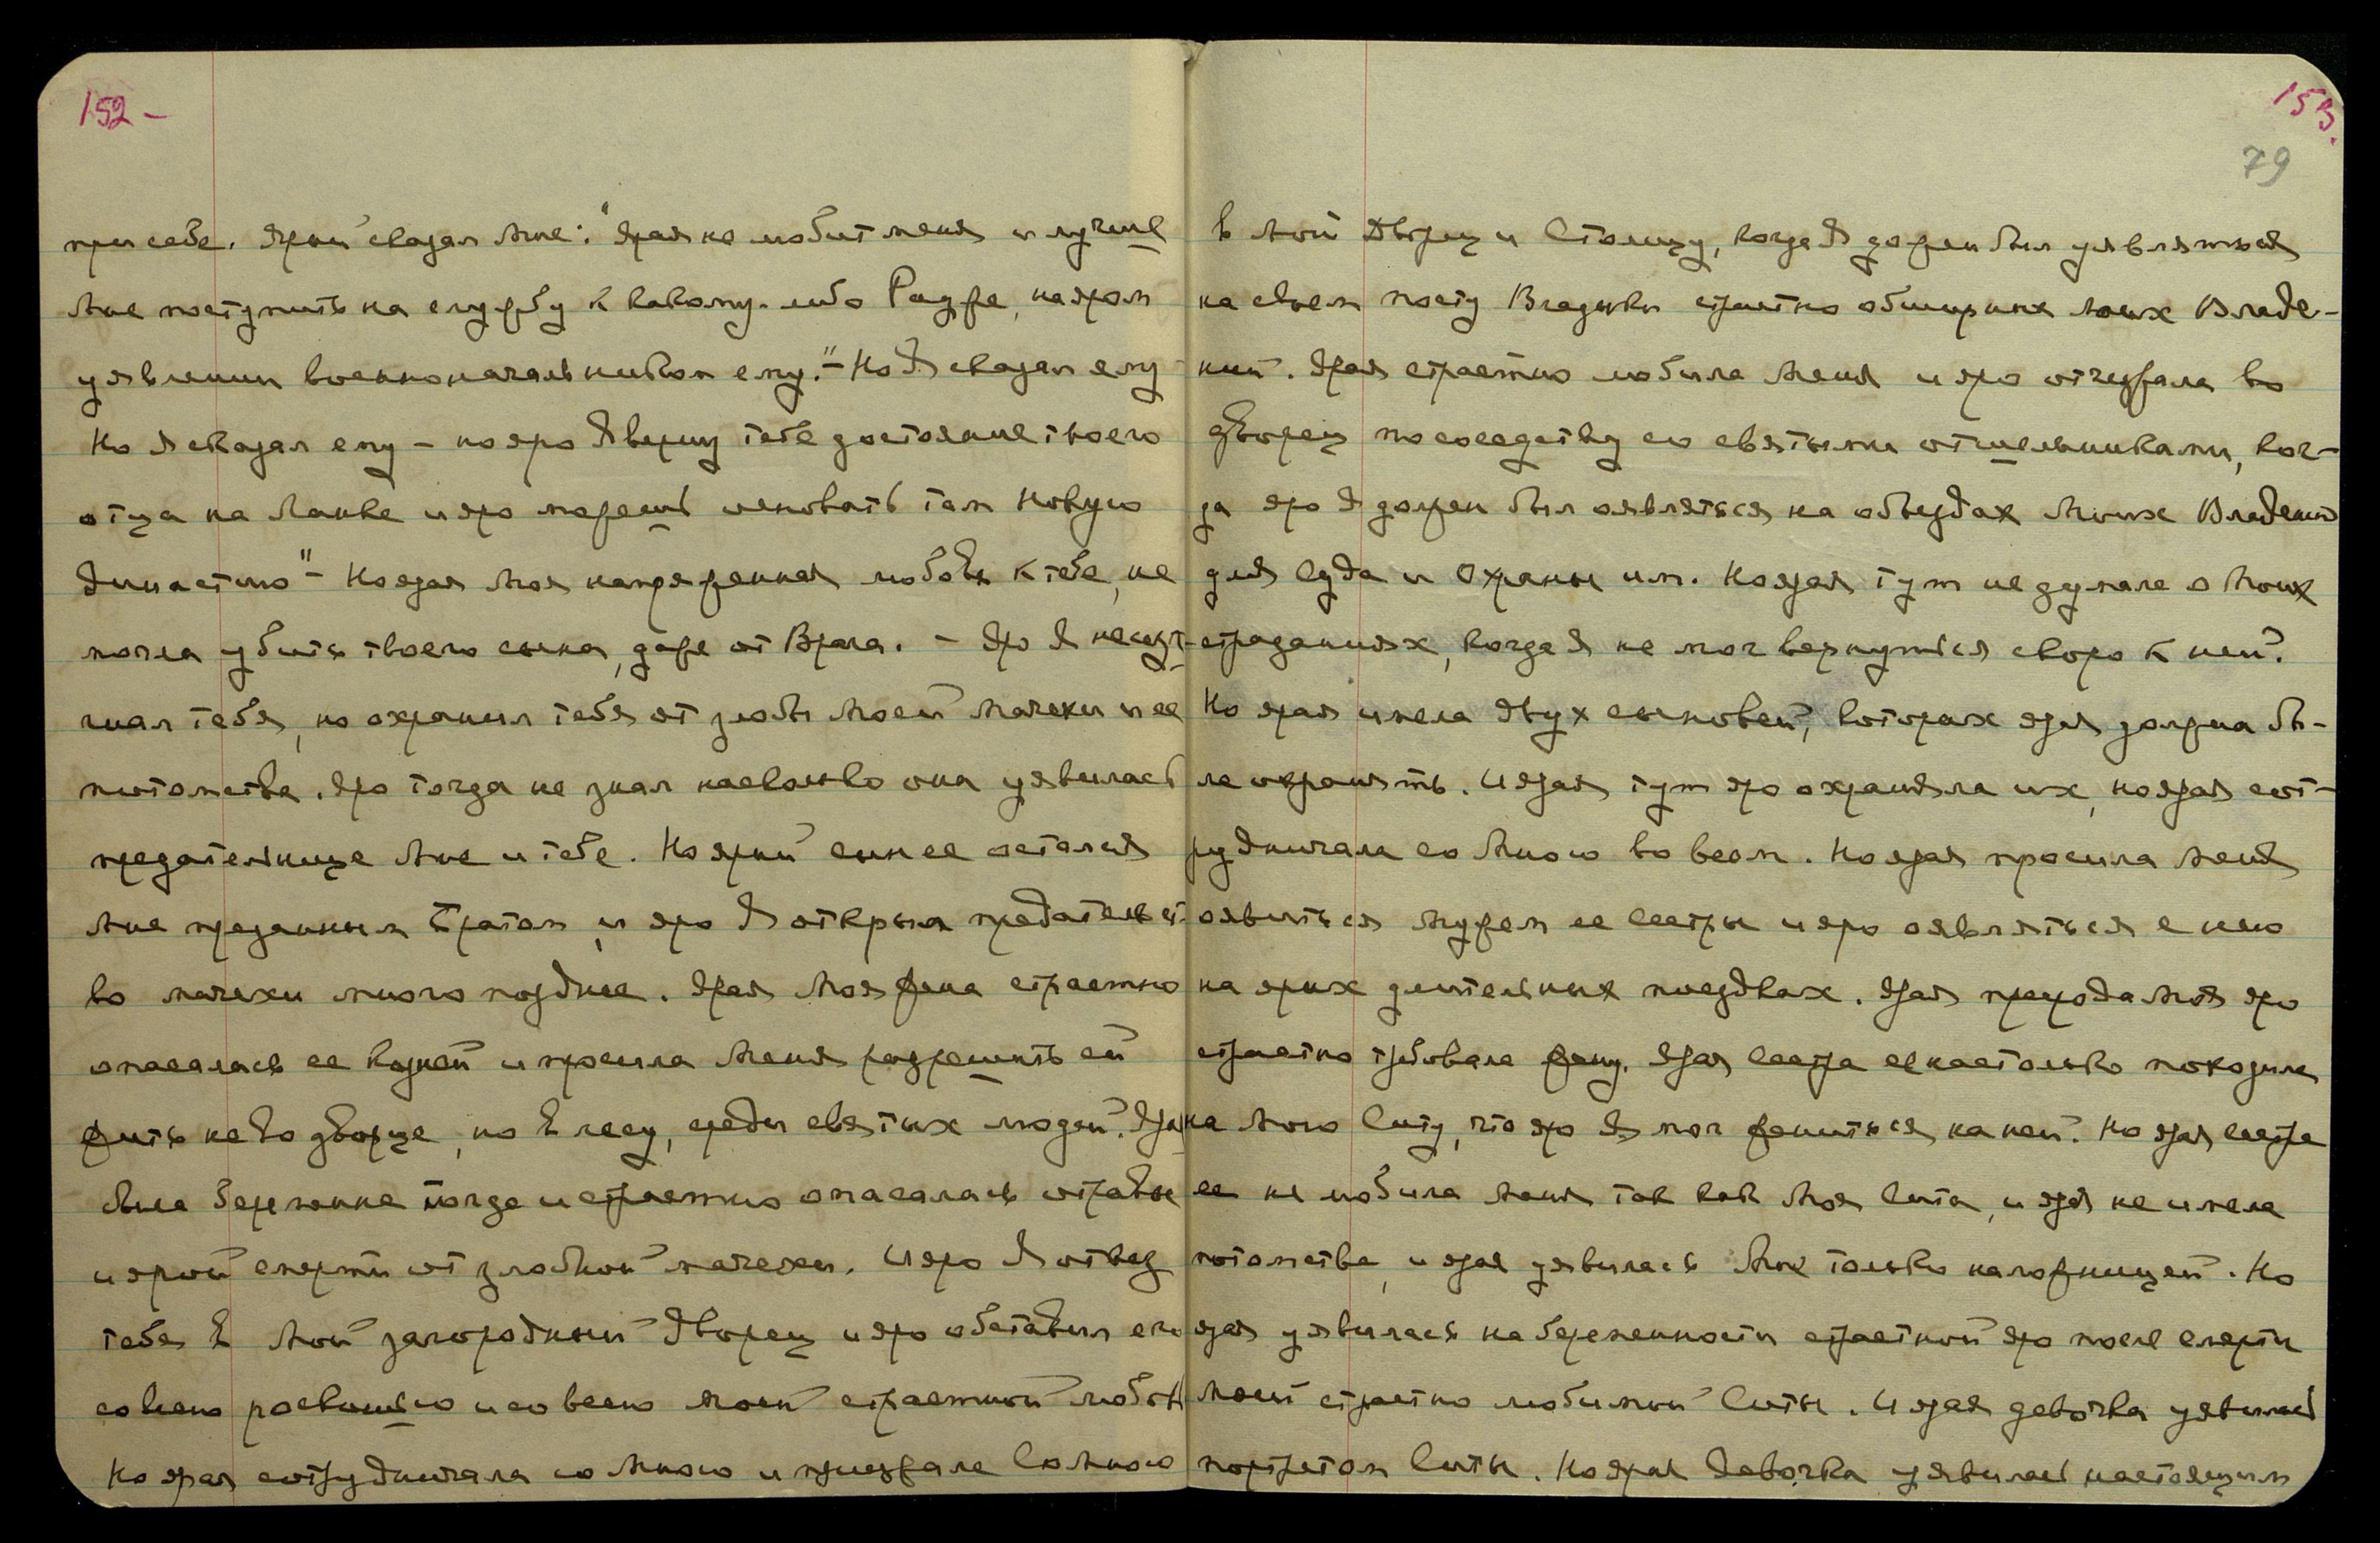 152 –
при себе. Ярый сказал Мне: "Ярая не любит меня и лучше
Мне поступить на службу к какому-либо Радже, на яром
уявлении военноначальником ему." – Но Я сказал ему
Но Я сказал ему – но яро Я верну тебе достояние твоего
отца на Ланке и яро можешь основать там Новую
Династию" – Но ярая Моя напряженная любовь к тебе, не
могла убить твоего сына, даже от Врага. – Яро Я не
гнал тебя, но охранил тебя от злобы Моей Мачехи и ее
потомства. Яро тогда не знал насколько она уявилась
предательнице Мне и тебе. Но ярый сын ее остался
Мне преданным Братом и яро Я открыл предательст-
во мачехи много позднее. Ярая Моя жена страстно
опасалась ее козней и просила Меня разрешить ей
жить не во дворце, но в лесу, среди святых людей. Ярая
была беременна тогда и страстно опасалась отравы
и ярой смерти от злобной мачехи. И яро Я отвез
тебя в Мой загородный Дворец и яро обставил его
со всею роскошью и со всею моей страстной любовью
Но ярая сотрудничала со Мною и приезжала со Мною
153.
79
в Мой Дворец и Столицу, когда Я должен был уявляться
на своем посту Владыки страстно обширных Моих Владе-
ний. Ярая страстно любила Меня и яро отъезжала во
дворец по соседству со святыми отшельниками, ког-
да яро Я должен был оявляться на объездах Моих Владений
для Суда и Охраны им. Но ярая тут не думала о Моих
страданиях, когда Я не мог вернуться скоро к ней.
Но ярая имела двух сыновей, которых ярая должна бы-
ла охранять. И ярая тут яро охраняла их, но ярая сот-
рудничала со Мною во всем. Но ярая просила Меня
оявиться мужем ее Сестры и яро оявляться с нею
на ярых длительных поездках. Ярая природа Моя яро
страстно требовала жену. Ярая Сестра ее настолько походила
на Мою Ситу, что яро Я мог жениться на ней. Но ярая Сестра
ее не любила Меня так как Моя Сита, и ярая не имела
потомства, и ярая уявилась Мне только наложницей. Но
ярая уявилась на беременности страстной яро после смерти
Моей страстно любимой Ситы. И ярая девочка уявилась
портретом Ситы. Но ярая Девочка уявилась настоящим